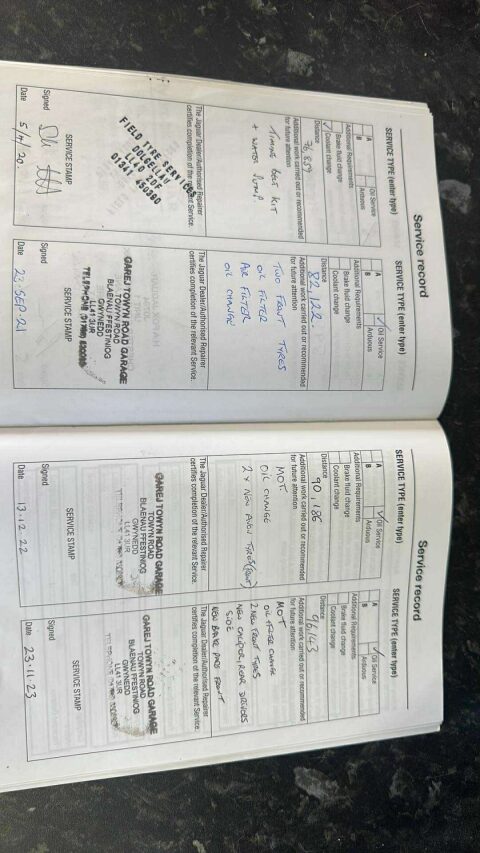 Service record
SERVICE TYPE (enter type)
A
Oil Service
B
Arduous
Additional Requirements
Brake fluid change
Coolant change
Distance
76,859
Additional work carried out or recommended
for future attention
TIMING BELT KIT
+ WATER PUMP
The Jaguar Dealer/Authorised Repairer
certifies completion of the relevant Service.
FIELD TYRE SERVICES
DOLGELLAU
LL40 2DF
01341 450360
SERVICE STAMP
Signed
Date
SERVICE TYPE (enter type)
A
Oil Service
B
Arduous
Additional Requirements
Brake fluid change
Coolant change
Distance
82,122.
Additional work carried out or recommended
for future attention
TWO FRONT TYRES
OIL FILTER
AIR FILTER
OIL CHANGE
The Jaguar Dealer/Authorised Repairer
certifies completion of the relevant Service.
GAREJ TOWYN ROAD GARAGE
TOWYN ROAD
BLAENAU FFESTINIOG
GWYNEDD
LL41 3UR
SERVICE STAMP
Signed
Date 23. SEP. 21
Service record
SERVICE TYPE (enter type)
A
Oil Service
B
Arduous
Additional Requirements
Brake fluid change
Coolant change
Distance
90,186
Additional work carried out or recommended
for future attention
MOT.
OIL CHANGE
2 x NEW AVON TYRES
The Jaguar Dealer/Authorised Repairer
certifies completion of the relevant Service.
GAREJ TOWYN ROAD GARAGE
TOWYN ROAD
BLAENAU FFESTINIOG
GWYNEDD
LL41 3UR
SERVICE STAMP
Signed
Date 13.12.22
SERVICE TYPE (enter type)
A
Oil Service
B
Arduous
Additional Requirements
Brake fluid change
Coolant change
Distance
Additional work carried out or recommended
for future attention
MOT
OIL FILTER CHANGE
2 NEW FRONT TYRES
NEW CALIPER, REAR DRIVERS
SIDE
NEW BRAKE PADS FRONT
The Jaguar Dealer/Authorised Repairer
certifies completion of the relevant Service.
GAREJ TOWYN ROAD GARAGE
TOWYN ROAD
BLAENAU FFESTINIOG
GWYNEDD
LL41 3UR
SERVICE STAMP
Signed
Date 23.11.23